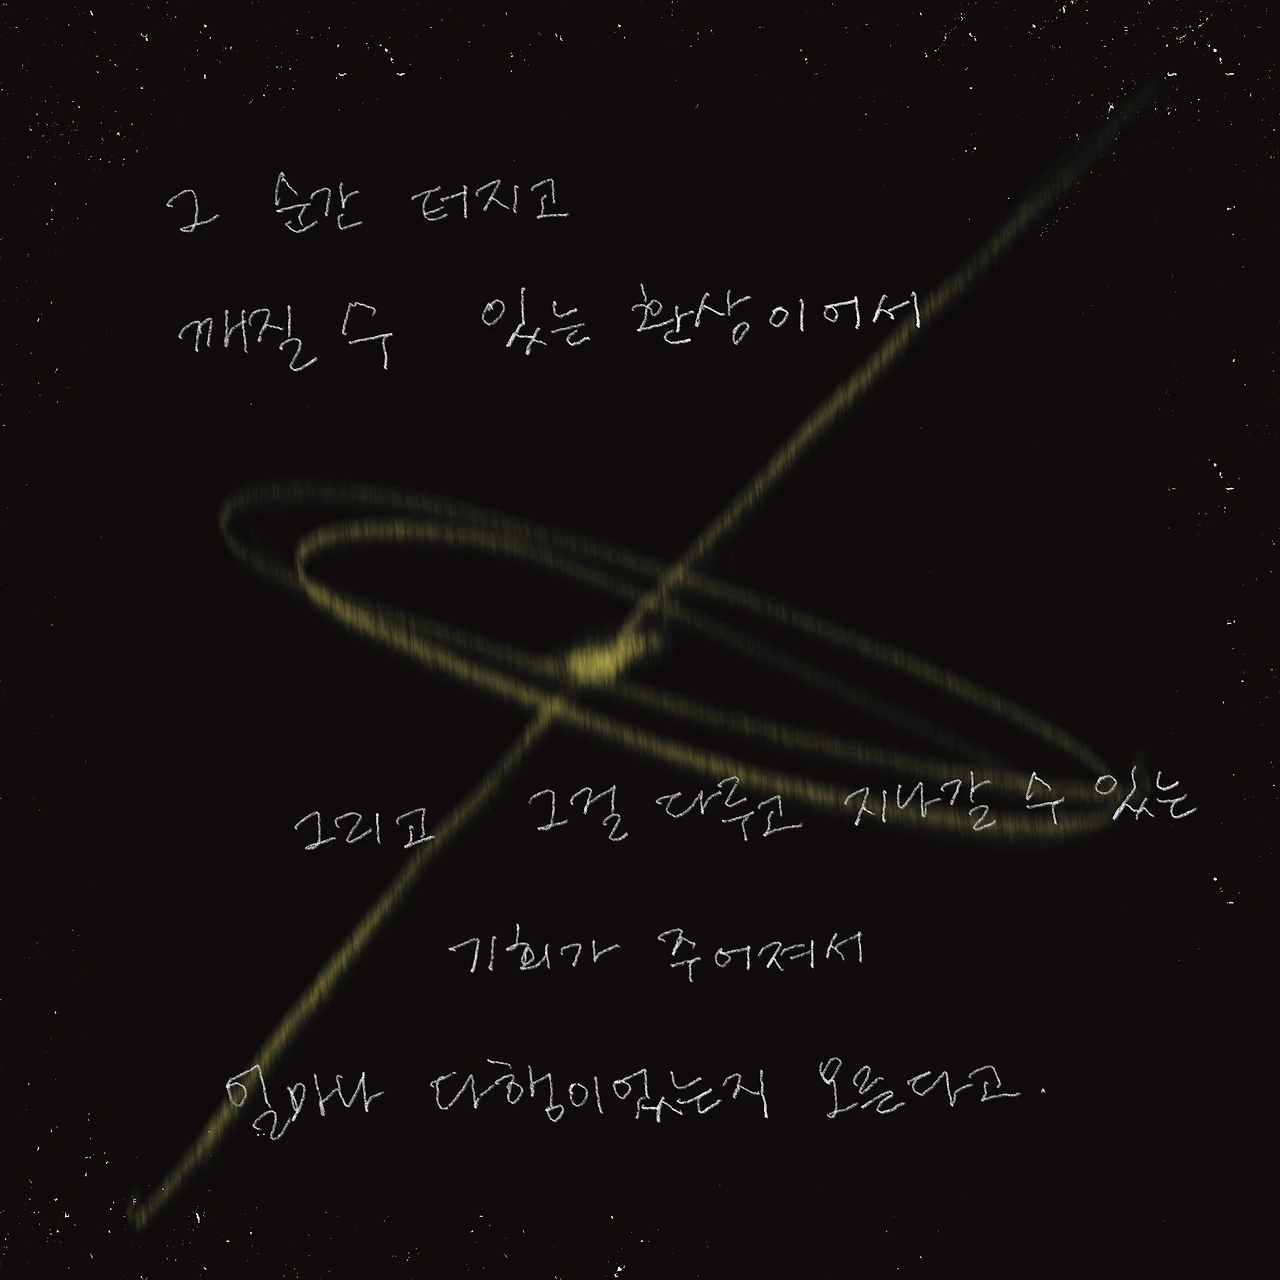 그 순간 터지고
깨질 수 있는 환상이어서
그리고 그걸 다루고 지나갈 수 있는
기회가 주어져서
얼마나 다행이었는지 모른다고.